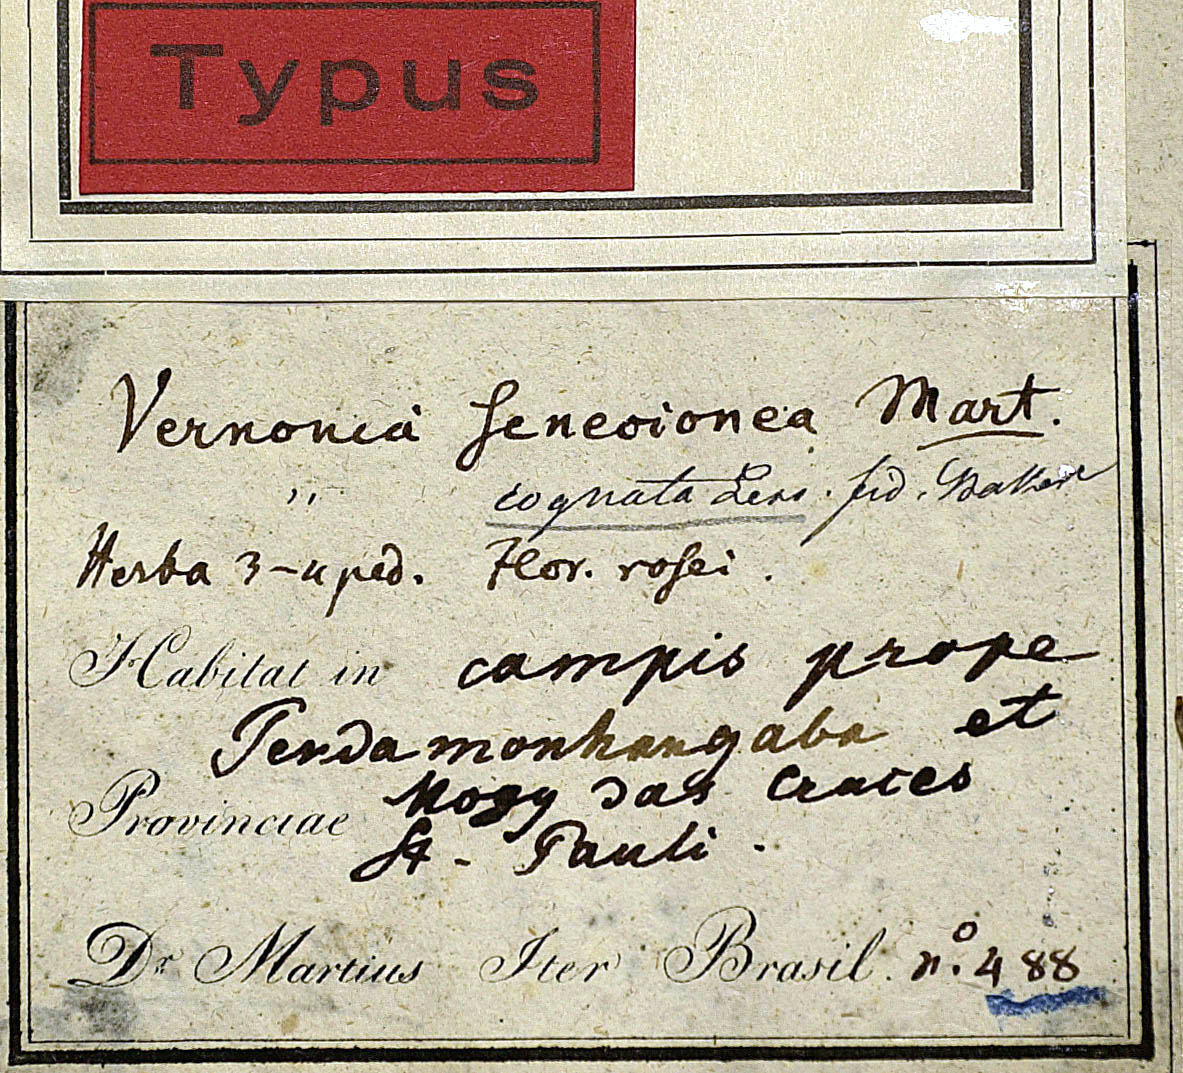 Typus
Vernonia senecionea Mart.
" cognata Less. fid. Baker
Herba 3-4 ped. Flor. rosei.
Habitat in campis prope
Pendamonhangaba et
Mogy das Cruces
Provinciae
St. Pauli.
Dr Martius Iter Brasil. n.º 488